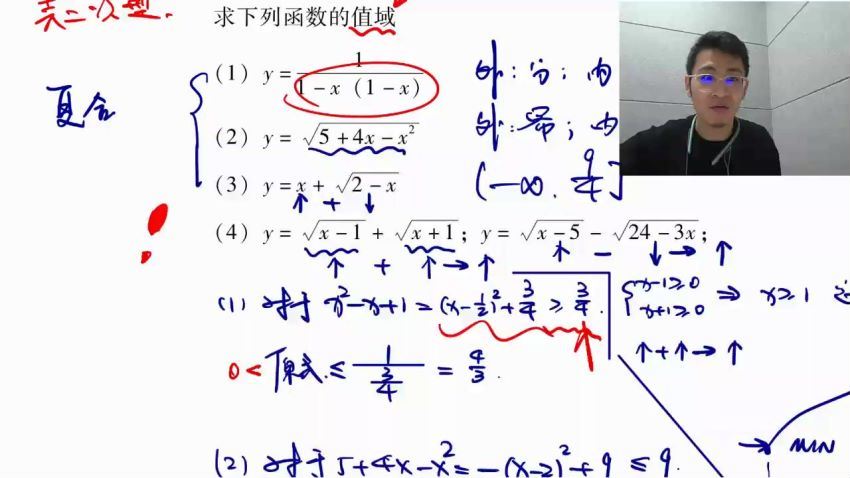 类二次型.
求下列函数的值域
复合
(1) y=1/(1-x(1-x)) 外:分;内
(2) y=√(5+4x-x²) 外:幂;内
(3) y=x+√(2-x) (-∞, 9/4]
↑ + ↓
(4) y=√(x-1)+√(x+1); y=√(x-5)-√(24-3x);
↑ + ↑→↑ ↑ - ↓→↑
(1) 对于 x²-x+1=(x-1/2)²+3/4≥3/4. {x-1≥0 x+1≥0 ⇒ x≥1
↑+↑→↑
0< 原式≤1/(3/4)=4/3.
→ MIN
(2) 对于5+4x-x²=-(x-2)²+9≤9.